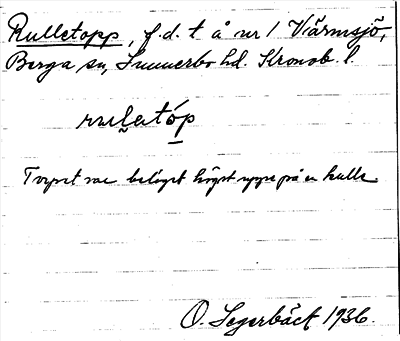 Rulletopp, f.d. t å nr 1 Värmsjö,
Berga sn, Sunnerbo hd. Kronob. l.
rulatóp
Torpet var beläget högst uppe på en kulle
O. Segerbäck 1936.